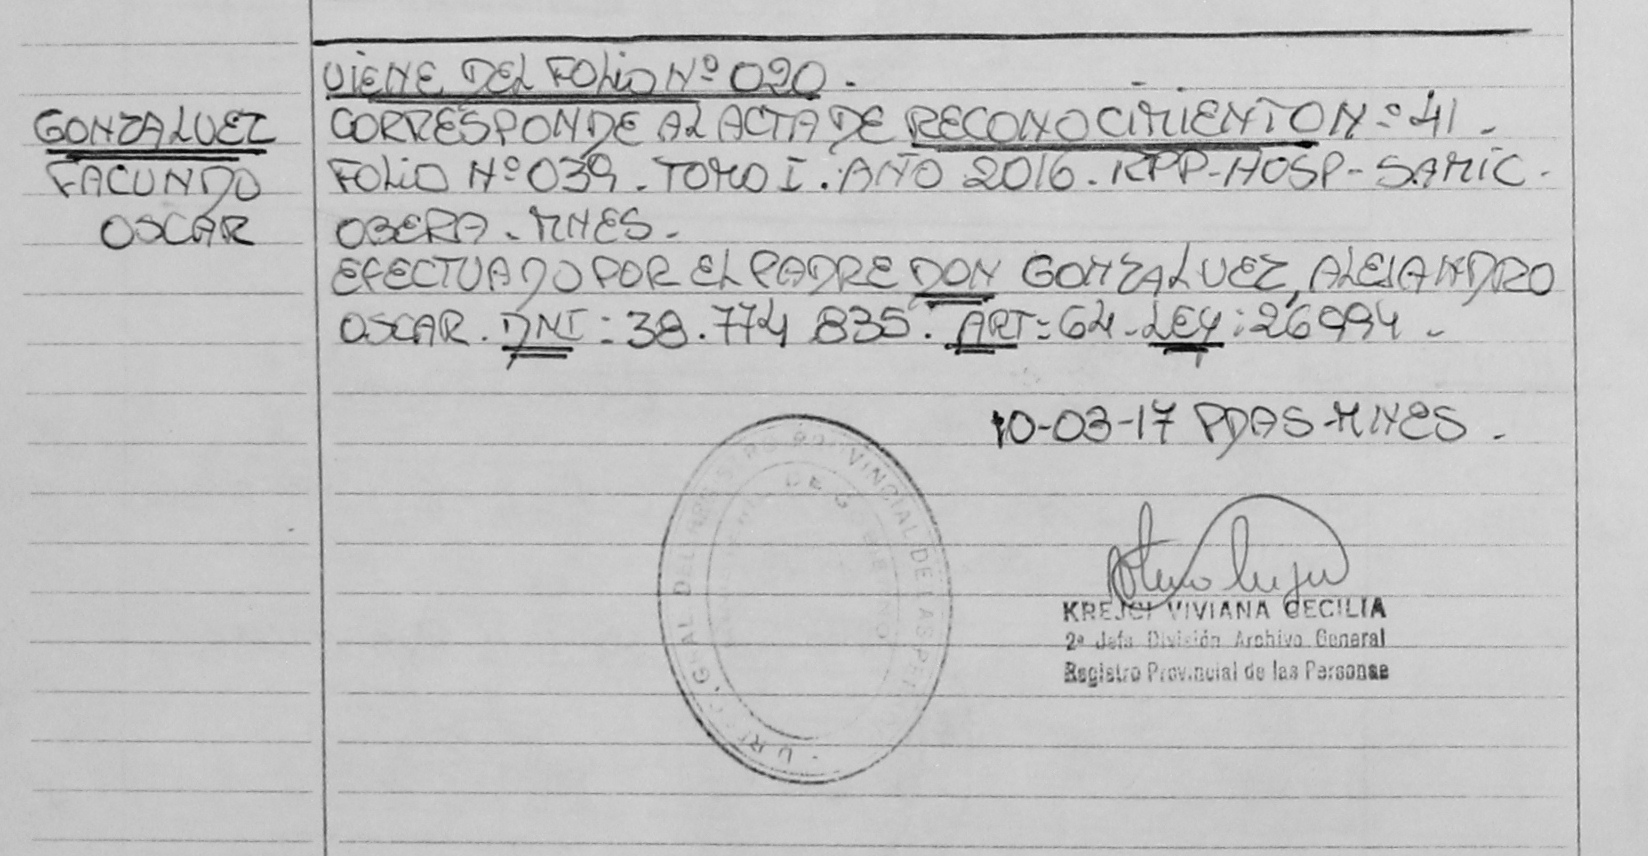 VIENE DEL FOLIO Nº 020.
GONZALVEZ
FACUNDO
OSCAR
CORRESPONDE AL ACTA DE RECONOCIMIENTO Nº 41.
FOLIO Nº 039. TOMO I. AÑO 2016. RPP-HOSP-SAMIC.
OBERA. MNES.
EFECTUADO POR EL PADRE DON GONZALVEZ, ALEJANDRO
OSCAR. DNI: 38.774 835. ART: 64. LEY: 26994.
10-03-17 PDAS-MNES.
KREJCI VIVIANA CECILIA
2ª Jefa División Archivo General
Registro Provincial de las Personas